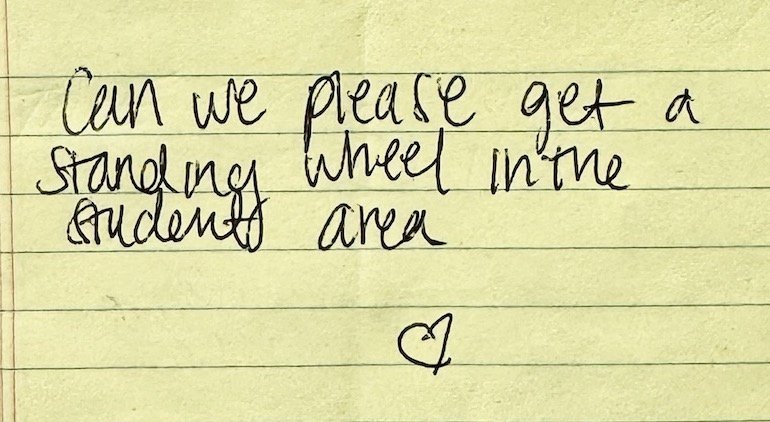 Can we please get a
standing wheel in the
students area